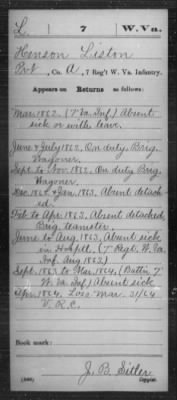 L. 7 W. Va.
Henson Liston
Pvt, Co. A, 7 Reg't W. Va. Infantry.
Appears on Returns as follows:
Mar. 1862. (7 Va. Inf) Absent
sick or with leave.
June & July 1862. On duty Brig.
Wagoner.
Sept. to Nov. 1862. On duty Brig.
Wagoner.
Dec. 1862 & Jan. 1863. Absent detach-
ed.
Feb. to Apr. 1863. Absent detached
Brig. teamster.
June to Aug. 1863. Absent sick
in Hospt'l. (7 Regt. W. Va.
Inf. Aug 1863)
Sept. 1863 to Mar. 1864. (Battn. 7
W. Va. Inf) Absent sick
Apr. 1864. Loss Mar. 31/64
V. R. C.
Book mark:
J. B. Sitler
Copyist.